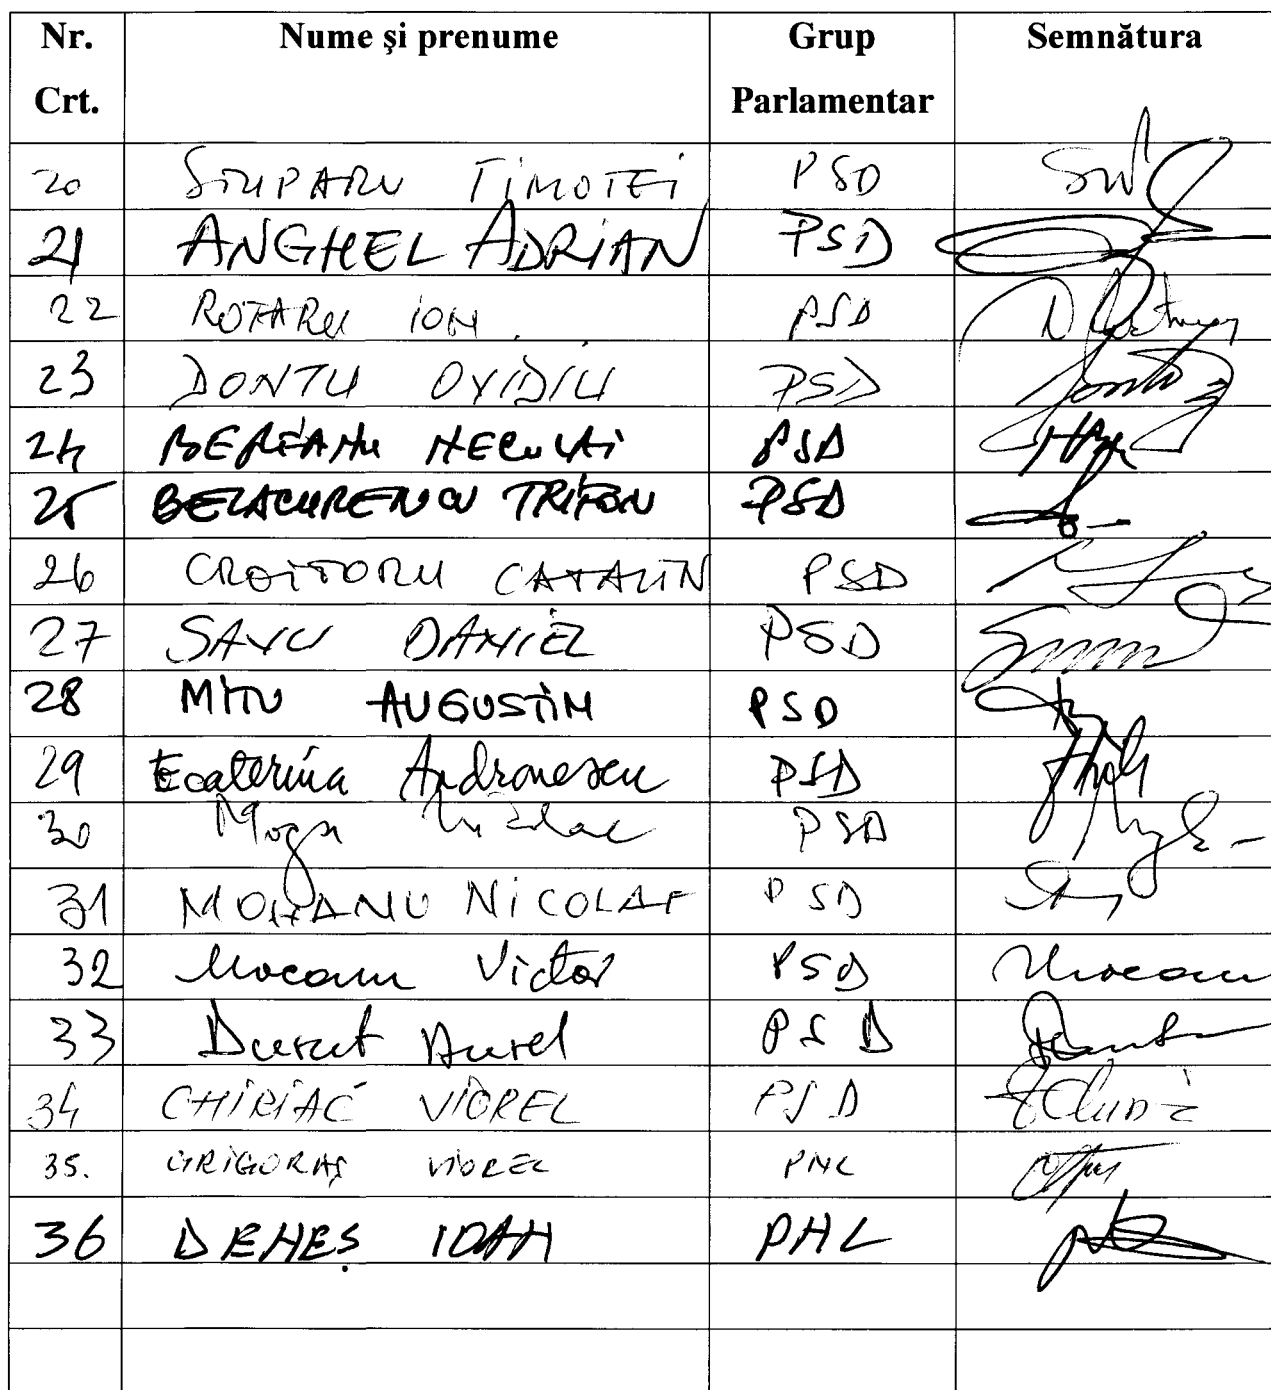 Nr. Crt. Nume şi prenume Grup Parlamentar Semnătura
20 STUPARU TIMOTEI PSD
21 ANGHEL ADRIAN PSD
22 ROTARU ION PSD
23 DONTU OVIDIU PSD
24 BEREANU NECULAI PSD
25 BELACURENCU TRIFON PSD
26 CROITORU CATALIN PSD
27 SAVU DANIEL PSD
28 MITU AUGUSTIN PSD
29 Ecaterina Andronescu PSD
30 Moga Nicolae PSD
31 MOHANU NICOLAE PSD
32 Mocanu Victor PSD Mocanu
33 Duruț Aurel PSD
34 CHIRIAC VIOREL PSD
35. GRIGORAŞ VIOREL PNL
36 DENEŞ IOAN PNL